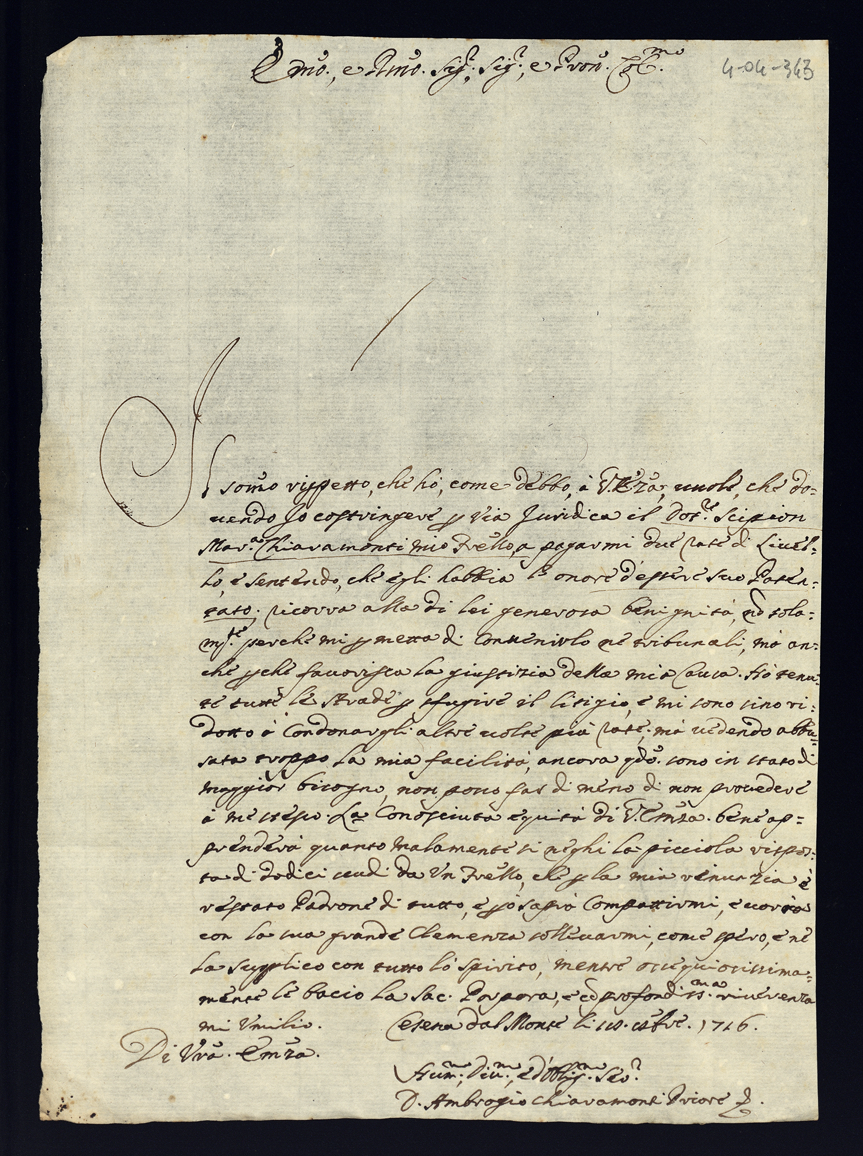 Emo., e Rmo. Sig.r, Sig.r, e Pron. Col.mo
4-04-343
Il sommo rispetto, che hò, come debbo, à V. Emza, vuole, che do=
vendo Io costringere p via Juridica il Dot.re Scipion
Mar.a Chiaramonti mio Frello, a pagarmi due rate di Livel=
lo, e sentendo, che egli habbia l'onore d'essere suo Paten=
tato. ricorra alla di lei generosa benignità, nò sola=
mte. perche mi pmetta di convenirlo ne tribunali, mà an=
che pche favorisca la giustizia della mia causa. Hò tenu=
te tutte le strade p sfugire il litigio, e mi sono sino ri=
dotto à condonargli altre volte più rate, mà vedendo abbu=
sata troppo la mia facilità, ancora qdo. sono in stato di
maggior bisogno, non posso far di meno di non provedere
à me stesso. La conosciuta equità di V. Emza. bene ap=
prenderà quanto malamente si neghi la picciola rispos=
ta di dodici scudi da un Frello, che p la mia renunzia è
restato Padrone di tutto, e pò saprà compattirmi, e
con la sua grande Clemenza sollevarmi, come spero, e ne
la supplico con tutto lo spirito, mentre ossequiosissima=
mente le bacio la Sac. Porpora, e cò profondiss.ma riverenza
mi Umilio. Cesena dal Monte li 1716.
Di Vra. Emza.
Hum.mo, Div.mo, ed Obblig.mo Ser.
D. Ambrogio Chiaramonti Priore